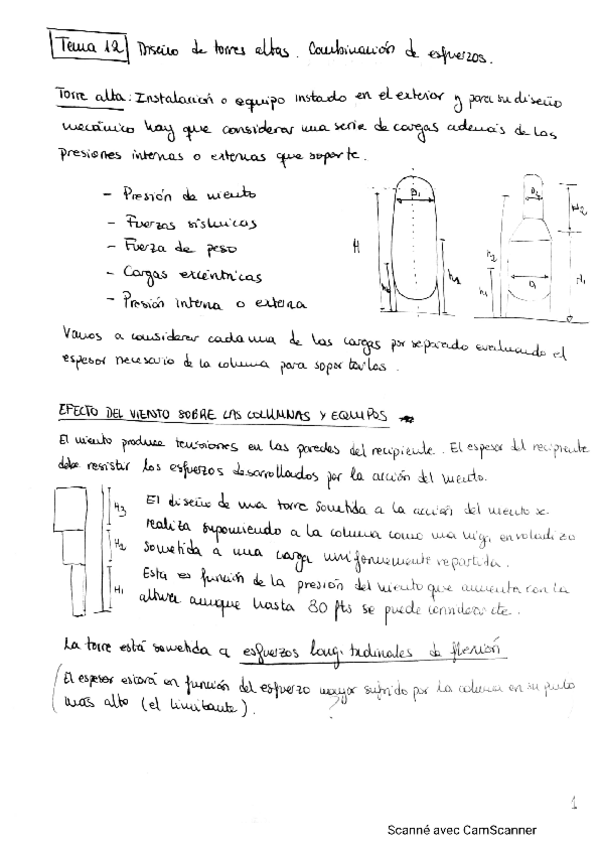 Tema 12 Diseño de torres altas. Combinación de esfuerzos.
Torre alta: Instalación o equipo instado en el exterior y para su diseño
mecánico hay que considerar una serie de cargas además de las
presiones internas o externas que soporte.
- Presión de viento
- Fuerzas sísmicas
- Fuerza de peso
- Cargas excéntricas
- Presión interna o externa
D1
H
h2
D2
H2
h2
h1
D1
H1
Vamos a considerar cada una de las cargas por separado evaluando el
espesor necesario de la columna para soportarlas.
EFECTO DEL VIENTO SOBRE LAS COLUMNAS Y EQUIPOS
El viento produce tensiones en las paredes del recipiente. El espesor del recipiente
debe resistir los esfuerzos desarrollados por la acción del viento.
H3
H2
H1
El diseño de una torre sometida a la acción del viento se
realiza suponiendo a la columna como una viga en voladizo
sometida a una carga uniformemente repartida.
Esta es función de la presión del viento que aumenta con la
altura aunque hasta 30 fts se puede considerar cte.
La torre está sometida a esfuerzos longitudinales de flexión
El espesor estará en función del esfuerzo mayor sufrido por la columna en su punto
más alto (el limitante). ?
1
Scanné avec CamScanner